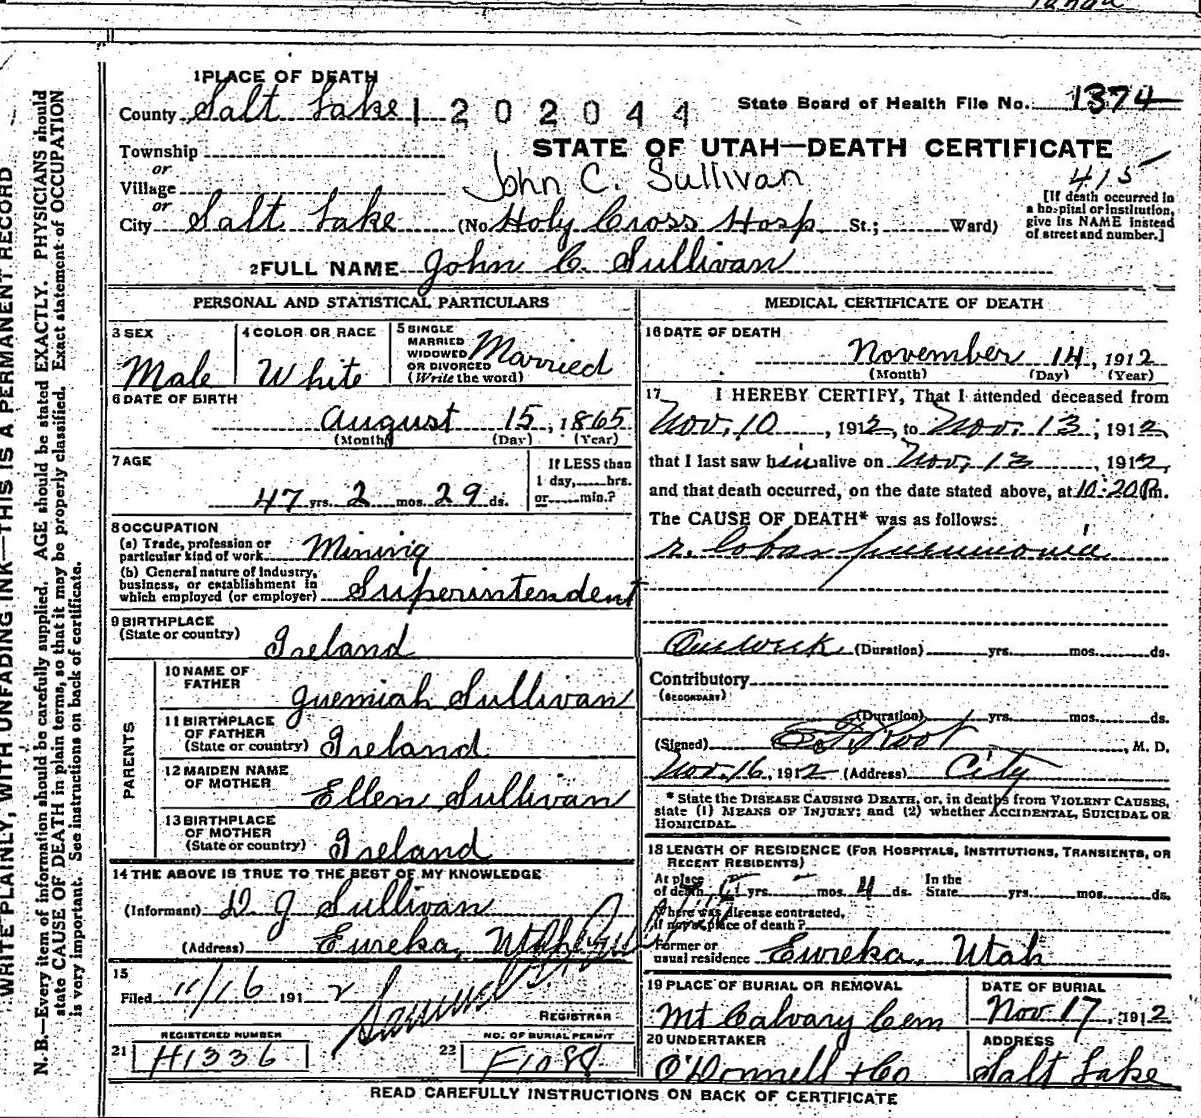 1 PLACE OF DEATH
County Salt Lake 1202044 State Board of Health File No. 1374
Township
or
STATE OF UTAH—DEATH CERTIFICATE
Village
John C. Sullivan 415
or
City Salt Lake (No. Holy Cross Hosp St.; Ward)
[If death occurred in
a hospital or institution,
give its NAME instead
of street and number.]
2 FULL NAME John C. Sullivan
PERSONAL AND STATISTICAL PARTICULARS
3 SEX
Male
4 COLOR OR RACE
White
5 SINGLE
MARRIED
WIDOWED
OR DIVORCED
(Write the word)
Married
6 DATE OF BIRTH
August 15, 1865
(Month) (Day) (Year)
7 AGE
47 yrs. 2 mos. 29 ds.
If LESS than
1 day, hrs.
or min.?
8 OCCUPATION
(a) Trade, profession or
particular kind of work Mining
(b) General nature of Industry,
business, or establishment in
which employed (or employer) Superintendent
9 BIRTHPLACE
(State or country)
Ireland
PARENTS
10 NAME OF
FATHER
Juemiah Sullivan
11 BIRTHPLACE
OF FATHER
(State or country) Ireland
12 MAIDEN NAME
OF MOTHER
Ellen Sullivan
13 BIRTHPLACE
OF MOTHER
(State or country) Ireland
14 THE ABOVE IS TRUE TO THE BEST OF MY KNOWLEDGE
(Informant) D J Sullivan
(Address) Eureka, Utah
15
Filed 11/16 1912
Samuel
REGISTRAR
REGISTERED NUMBER
21 H1336
NO. OF BURIAL PERMIT
22 F1088
MEDICAL CERTIFICATE OF DEATH
16 DATE OF DEATH
November 14, 1912
(Month) (Day) (Year)
17 I HEREBY CERTIFY, That I attended deceased from
Nov. 10, 1912, to Nov. 13, 1912,
that I last saw him alive on Nov. 13, 1912,
and that death occurred, on the date stated above, at 10:20 P.m.
The CAUSE OF DEATH* was as follows:
r. lobar pneumonia
One week (Duration) yrs. mos. ds.
Contributory
(SECONDARY)
(Duration) yrs. mos. ds.
(Signed) Root, M. D.
Nov. 16, 1912 (Address) City
* State the DISEASE CAUSING DEATH, or, in deaths from VIOLENT CAUSES,
state (1) MEANS OF INJURY; and (2) whether ACCIDENTAL, SUICIDAL OR
HOMICIDAL.
18 LENGTH OF RESIDENCE (FOR HOSPITALS, INSTITUTIONS, TRANSIENTS, OR
RECENT RESIDENTS)
At place
of death yrs. mos. 4 ds. In the
State yrs. mos. ds.
Where was disease contracted,
if not at place of death?
Former or
usual residence Eureka, Utah
19 PLACE OF BURIAL OR REMOVAL
Mt Calvary Cem
DATE OF BURIAL
Nov 17, 1912
20 UNDERTAKER
O'Donnell & Co
ADDRESS
Salt Lake
READ CAREFULLY INSTRUCTIONS ON BACK OF CERTIFICATE
WRITE PLAINLY, WITH UNFADING INK—THIS IS A PERMANENT RECORD
N. B.—Every item of information should be carefully supplied. AGE should be stated EXACTLY. PHYSICIANS should
state CAUSE OF DEATH in plain terms, so that it may be properly classified. Exact statement of OCCUPATION
is very important. See instructions on back of certificate.